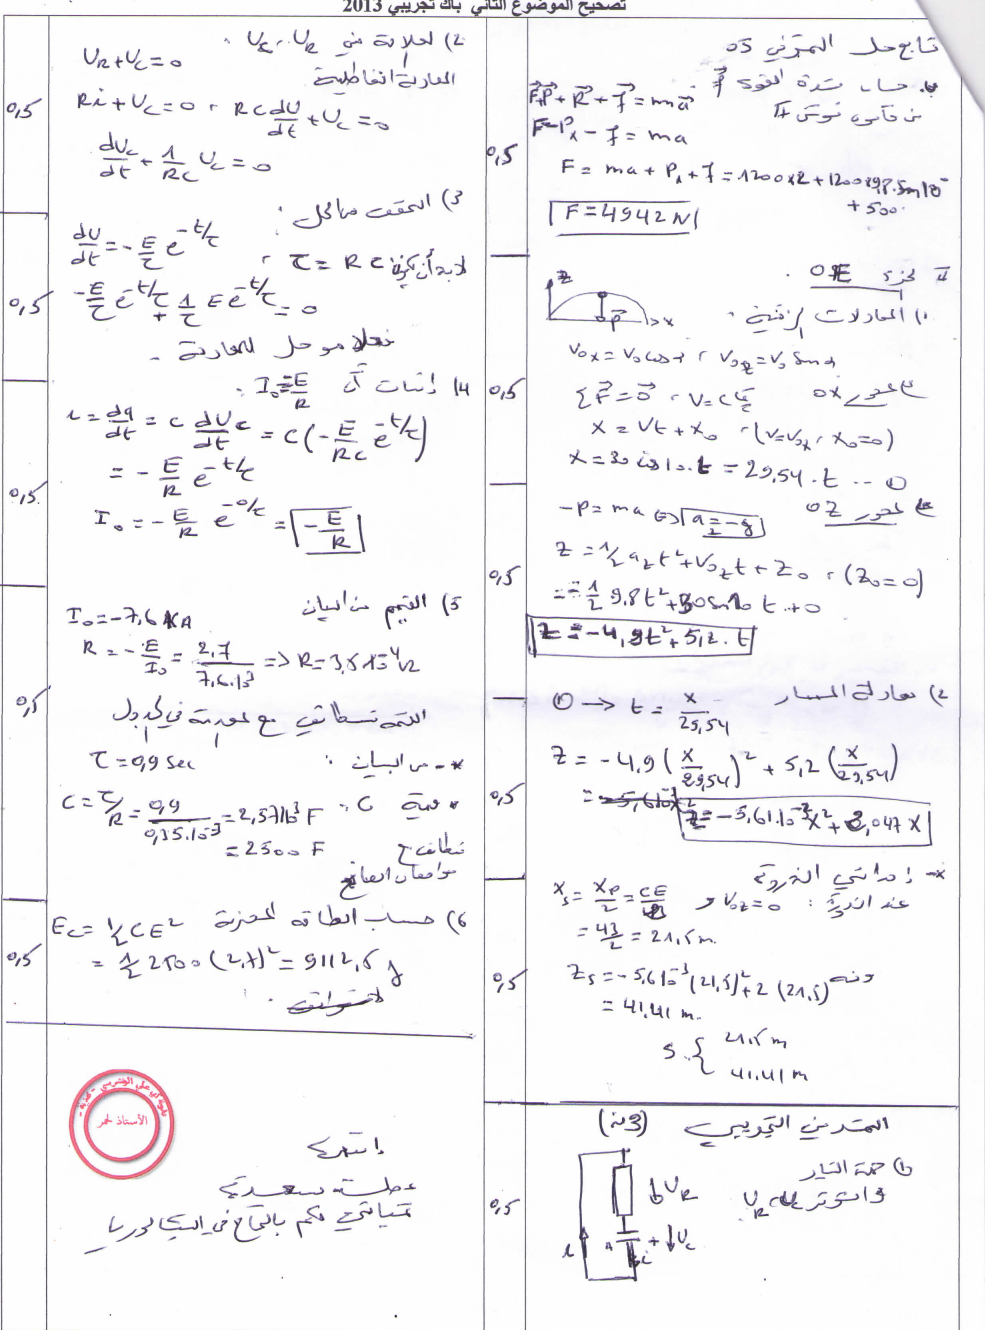 تصحيح الموضوع الثاني باك تجريبي 2013
تابع حل التمرين 05
ب. حساب شدة القوى F
من قانون نيوتن II
F + P + R + f = ma
F - Px - f = ma
0,5
F = ma + Px + f = 1200x2 + 1200x9,8.sin10°
+ 500.
F = 4942 N
II الجزء OE.
z
P
x
1) المعادلات الزمنية.
Vox = Vo cos α ، Voz = Vo Sin α
0,5
على محور ox
Σ F = 0 ، V = cte
x = Vt + xo ، (V=Vox، xo=0)
x = 30 cos10.t = 29,54.t -- ①
على محور OZ
-P = ma ⇔ az = -g
0,5
z = 1/2 az t² + Voz t + Zo ، (Zo = 0)
= -1/2 9,8t² + 30 sin10 t + 0
z = -4,9t² + 5,2.t
2) معادلة المسار
① → t = x/29,54
z = -4,9 (x/29,54)² + 5,2 (x/29,54)
0,5
z = -5,61.10⁻³x² + 2,047 x
*- إحداثيتي الذروة
عند الذروة: Voz = 0 و
xs = xp/2 = CE/2
= 43/2 = 21,5 m.
0,5
ومنه Zs = -5,6 10⁻³ (21,5)² + 2 (21,5)
= 41,41 m.
S { 21,5 m
41,41 m
التمرين التجريبي (3ن)
1) جهة التيار
والتوتر Uc، UR
0,5
UR
Uc
i
2) العلاقة بين UR، Uc.
UR + Uc = 0
المعادلة التفاضلية
0,5
Ri + Uc = 0 ، RC dU/dt + Uc = 0
dUc/dt + 1/RC Uc = 0
3) التحقق من الحل:
dU/dt = -E/τ e^-t/τ
لابد أن يكون τ = RC ،
0,5
-E/τ e^-t/τ + 1/τ E e^-t/τ = 0
فعلا هو حل للمعادلة.
4) إثبات أن Io = -E/R:
i = dq/dt = C dUc/dt = C(-E/RC e^-t/τ)
= -E/R e^-t/τ
0,5
Io = -E/R e^-0/τ = -E/R
5) القيم من البيان
Io = -7,6 KA
R = -E/Io = 2,7/7,6.10³ => R = 3,5 x 10⁻⁴ Ω
0,5
القيمة تتطابق مع المدونة في الجدول
*- من البيان:
τ = 0,9 sec
* قيمة C:
C = τ/R = 0,9/0,35.10⁻³ = 2,57 10³ F
= 2500 F
تطابق مع
مواصفات الصانع
6) حساب الطاقة المخزنة Ec = 1/2 CE²
0,5
= 1/2 2500 (2,7)² = 9112,5 J
ثانوية أبي علي الونشريسي
الأستاذ لحمر
انتهى
عطلة سعيدة
تمنياتي لكم بالنجاح في البكالوريا